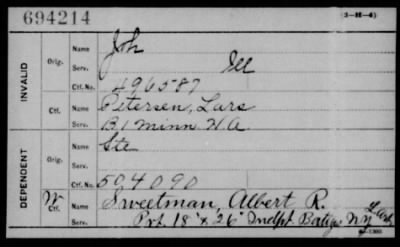 694214 (3-H-4)
INVALID
Orig.
Name Joh
Serv. Ill
Ctf. No. 496587
Ctf.
Name Petersen, Lars
Serv. B, 1 Minn. H A
DEPENDENT
Orig.
Name Ste
Serv.
Ctf. No. 504090
W Ctf.
Name Sweetman, Albert R.
Serv. Pvt. 18" & 26" Indpt Batty N.Y.